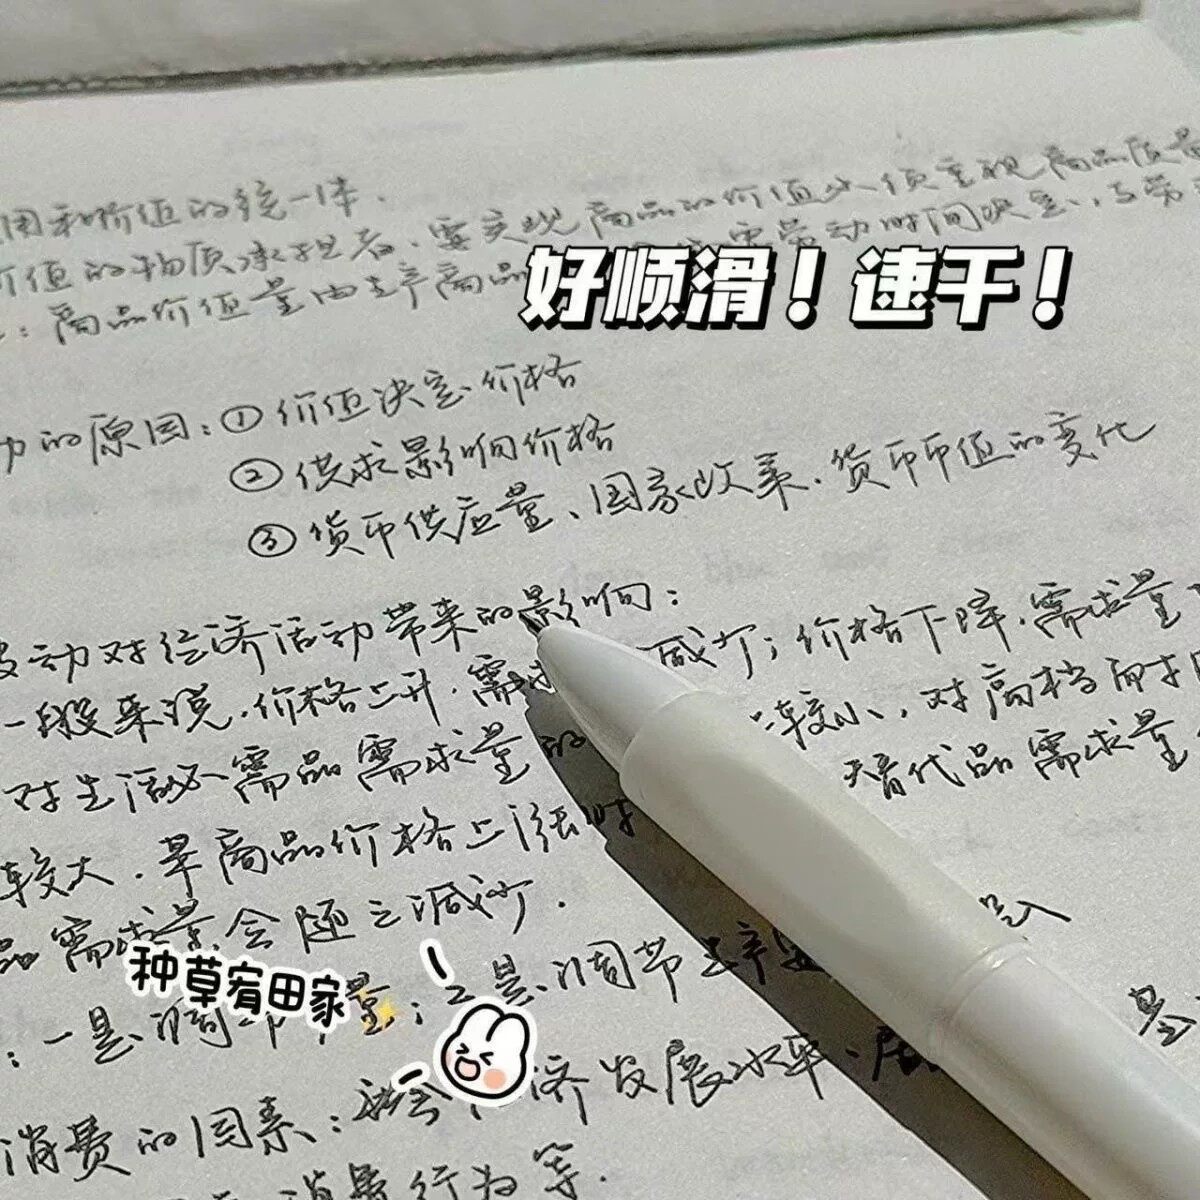 用和价值的统一体.
价值的物质承担者.要实现商品的价值必须重视商品质量
:商品价值量由生产商品 劳动时间决定,与劳
好顺滑!速干!
动的原因:①价值决定价格
②供求影响价格
③货币供应量、国家政策.货币币值的变化
波动对经济活动带来的影响:
一般来说.价格上升.需求 减少;价格下降.需求量
对生活必需品需求量的 较小,对高档耐用
较大.某商品价格上涨时 替代品需求量
品需求量会随之减少.
种草宥田家
:一是调 量;二是调节生产
消费的因素:社会 济发展水平.居
消费行为等.